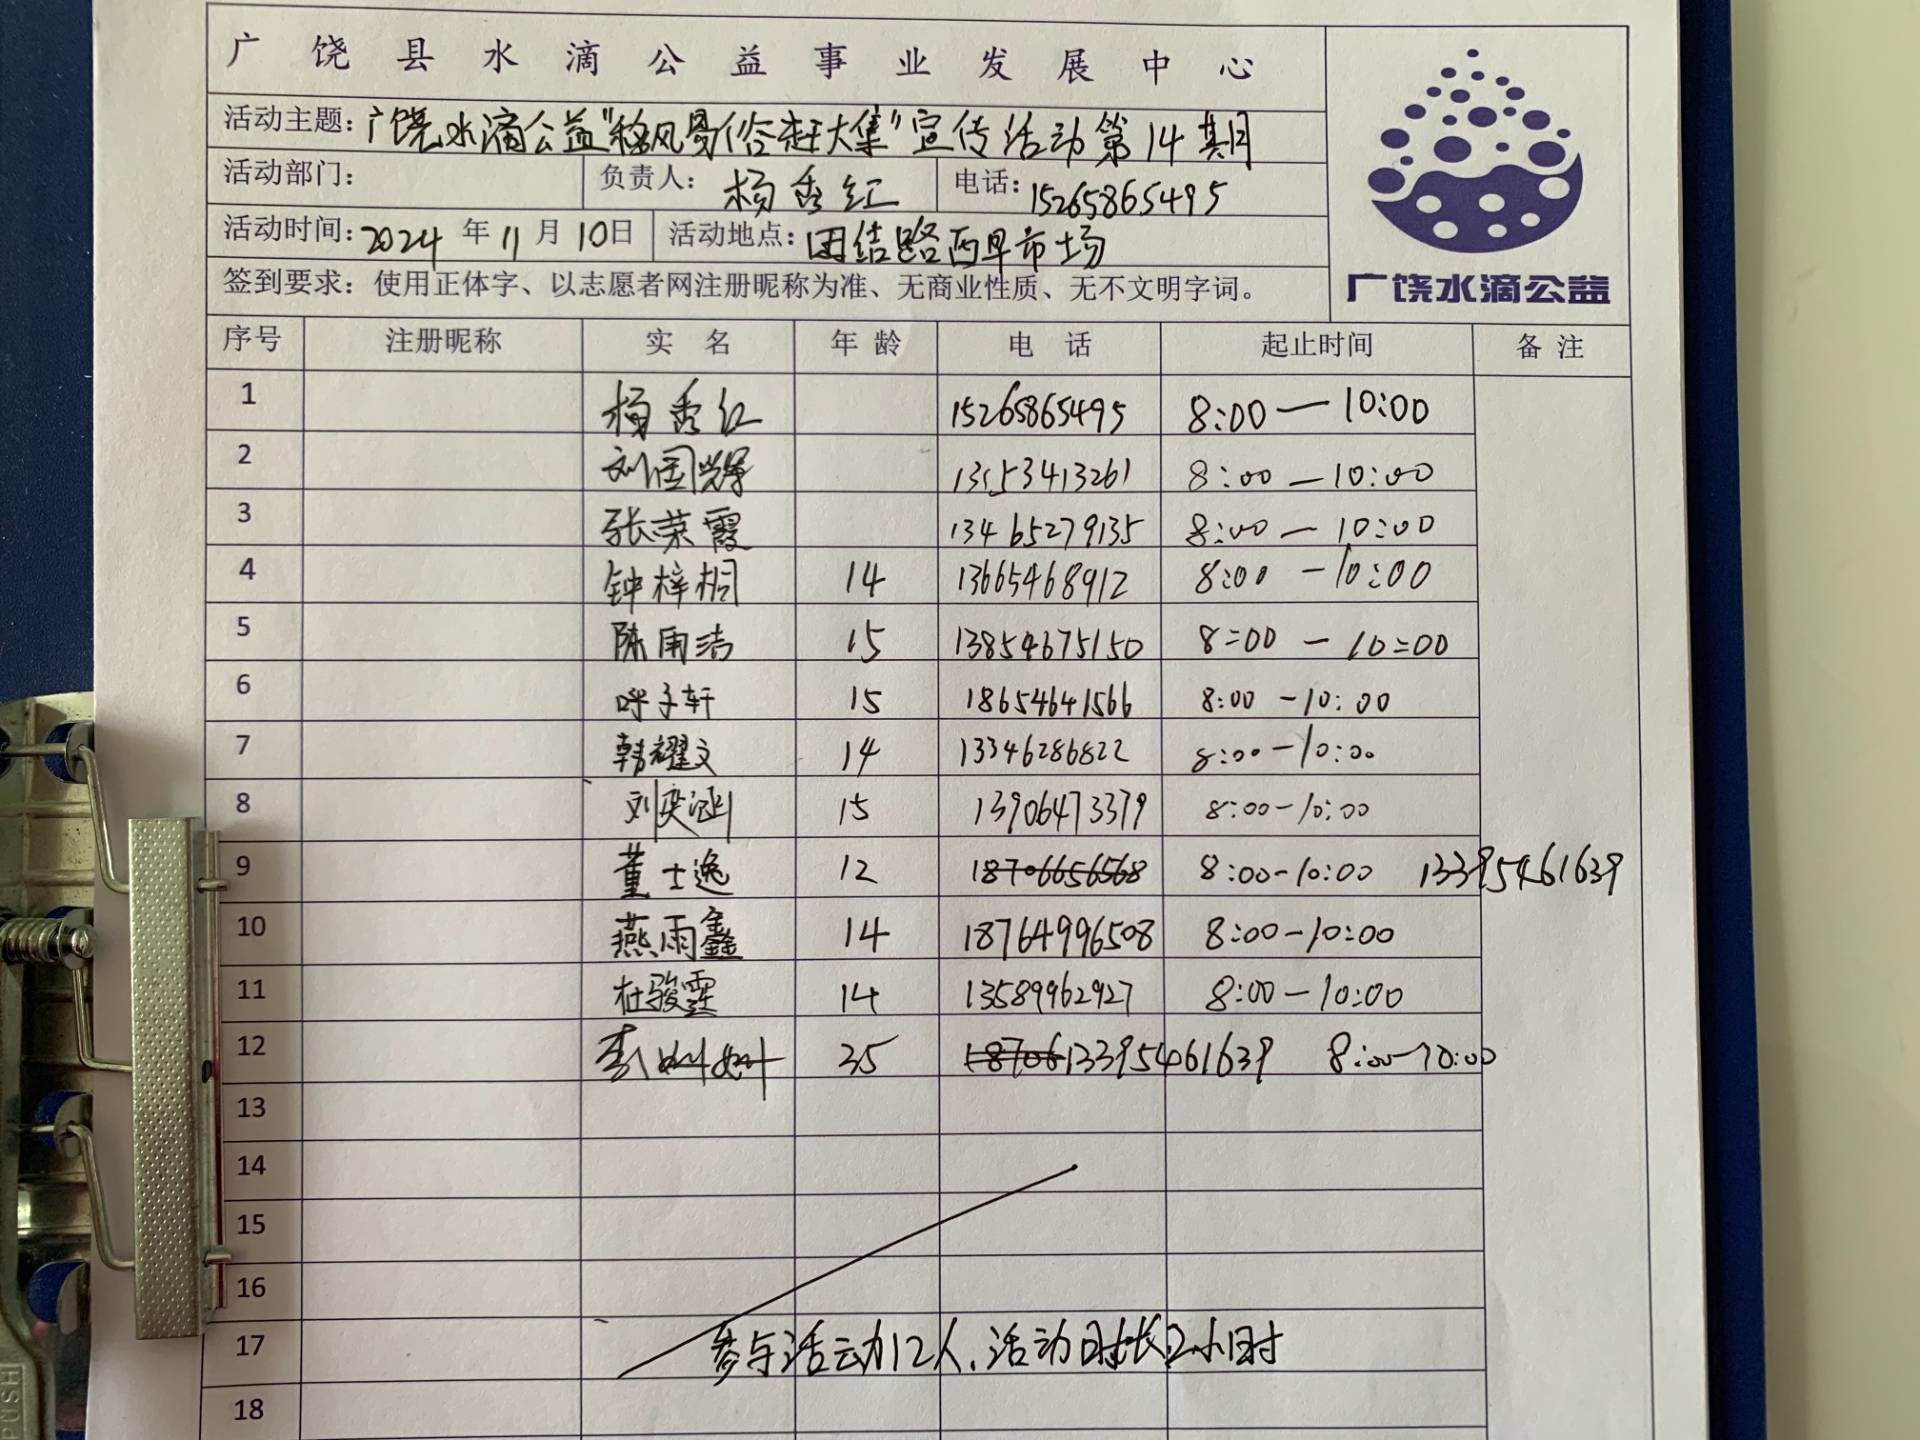 广饶县水滴公益事业发展中心
活动主题：广饶水滴公益"移风易俗赶大集"宣传活动第14期
活动部门： 负责人：杨秀红 电话：15265865495
活动时间：2024年11月10日 活动地点：团结路西早市场
签到要求：使用正体字、以志愿者网注册昵称为准、无商业性质、无不文明字词。
广饶水滴公益
序号 注册昵称 实名 年龄 电话 起止时间 备注
1 杨秀红 15265865495 8:00—10:00
2 刘国 13153413261 8:00—10:00
3 张荣霞 13465279135 8:00—10:00
4 钟梓桐 14 13665468912 8:00—10:00
5 陈雨洁 15 13854675150 8:00—10:00
6 呼子轩 15 18654641566 8:00-10:00
7 韩耀文 14 13346286822 8:00-10:00
8 刘奕涵 15 13906473379 8:00-10:00
9 董士逸 12 18706656568 8:00-10:00 13395461639
10 燕雨鑫 14 18764996508 8:00-10:00
11 杜骏霆 14 13589962927 8:00-10:00
12 李 35 18706 13395461639 8:00-10:00
13
14
15
16
17 参与活动12人,活动时长2小时
18
PUSH